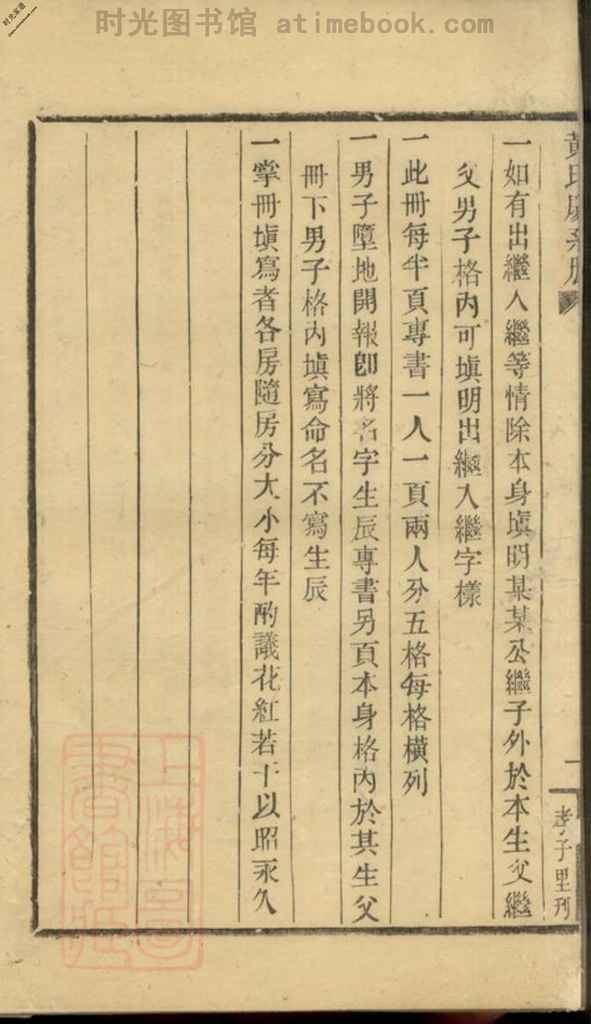 时光图书馆 atimebook.com
一如有出繼入繼等情除本身塡明某某公繼子外於本生父繼
父男子格內可塡明出繼入繼字樣
一此冊每半頁專書一人一頁兩人分五格每格橫列
一男子墮地開報卽將名字生辰專書另頁本身格內於其生父
冊下男子格內塡寫命名不寫生辰
一掌冊塡寫者各房隨房分大小每年酌議花紅若干以昭永久
孝子里刋